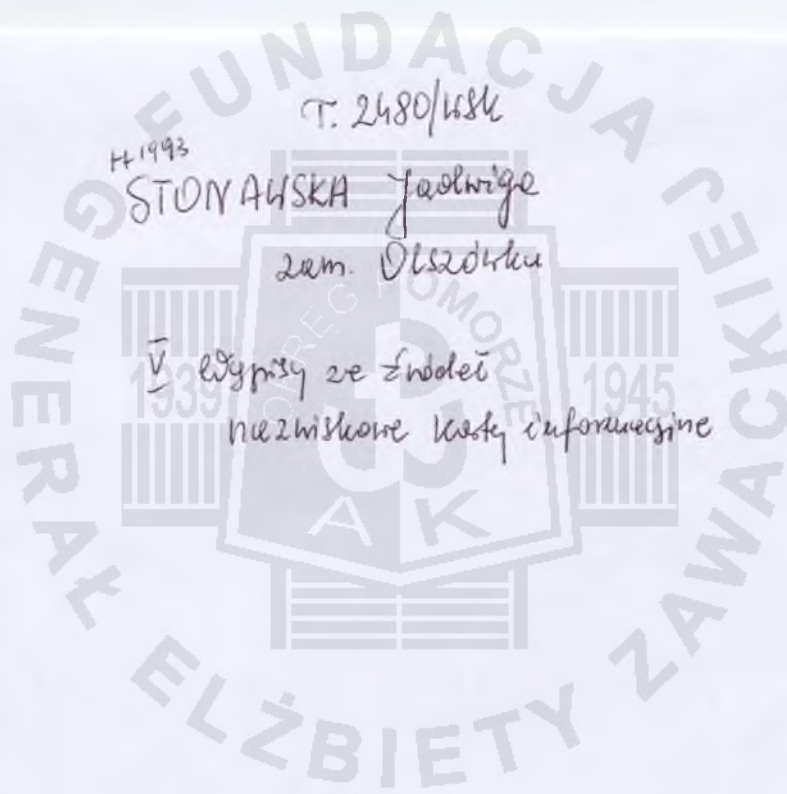 T. 2480/WSK
H 1993
STONAWSKA Jadwiga
zam. Olszówka
V Wypisy ze źródeł
nazwiskowe karty informacyjne
FUNDACJA
GENERAŁ ELŻBIETY ZAWACKIEJ
OKRĘG POMORZE
1939
1945
AK